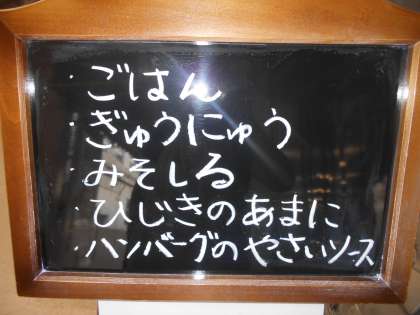 ・ごはん
・ぎゅうにゅう
・みそしる
・ひじきのあまに
・ハンバーグのやさいソース